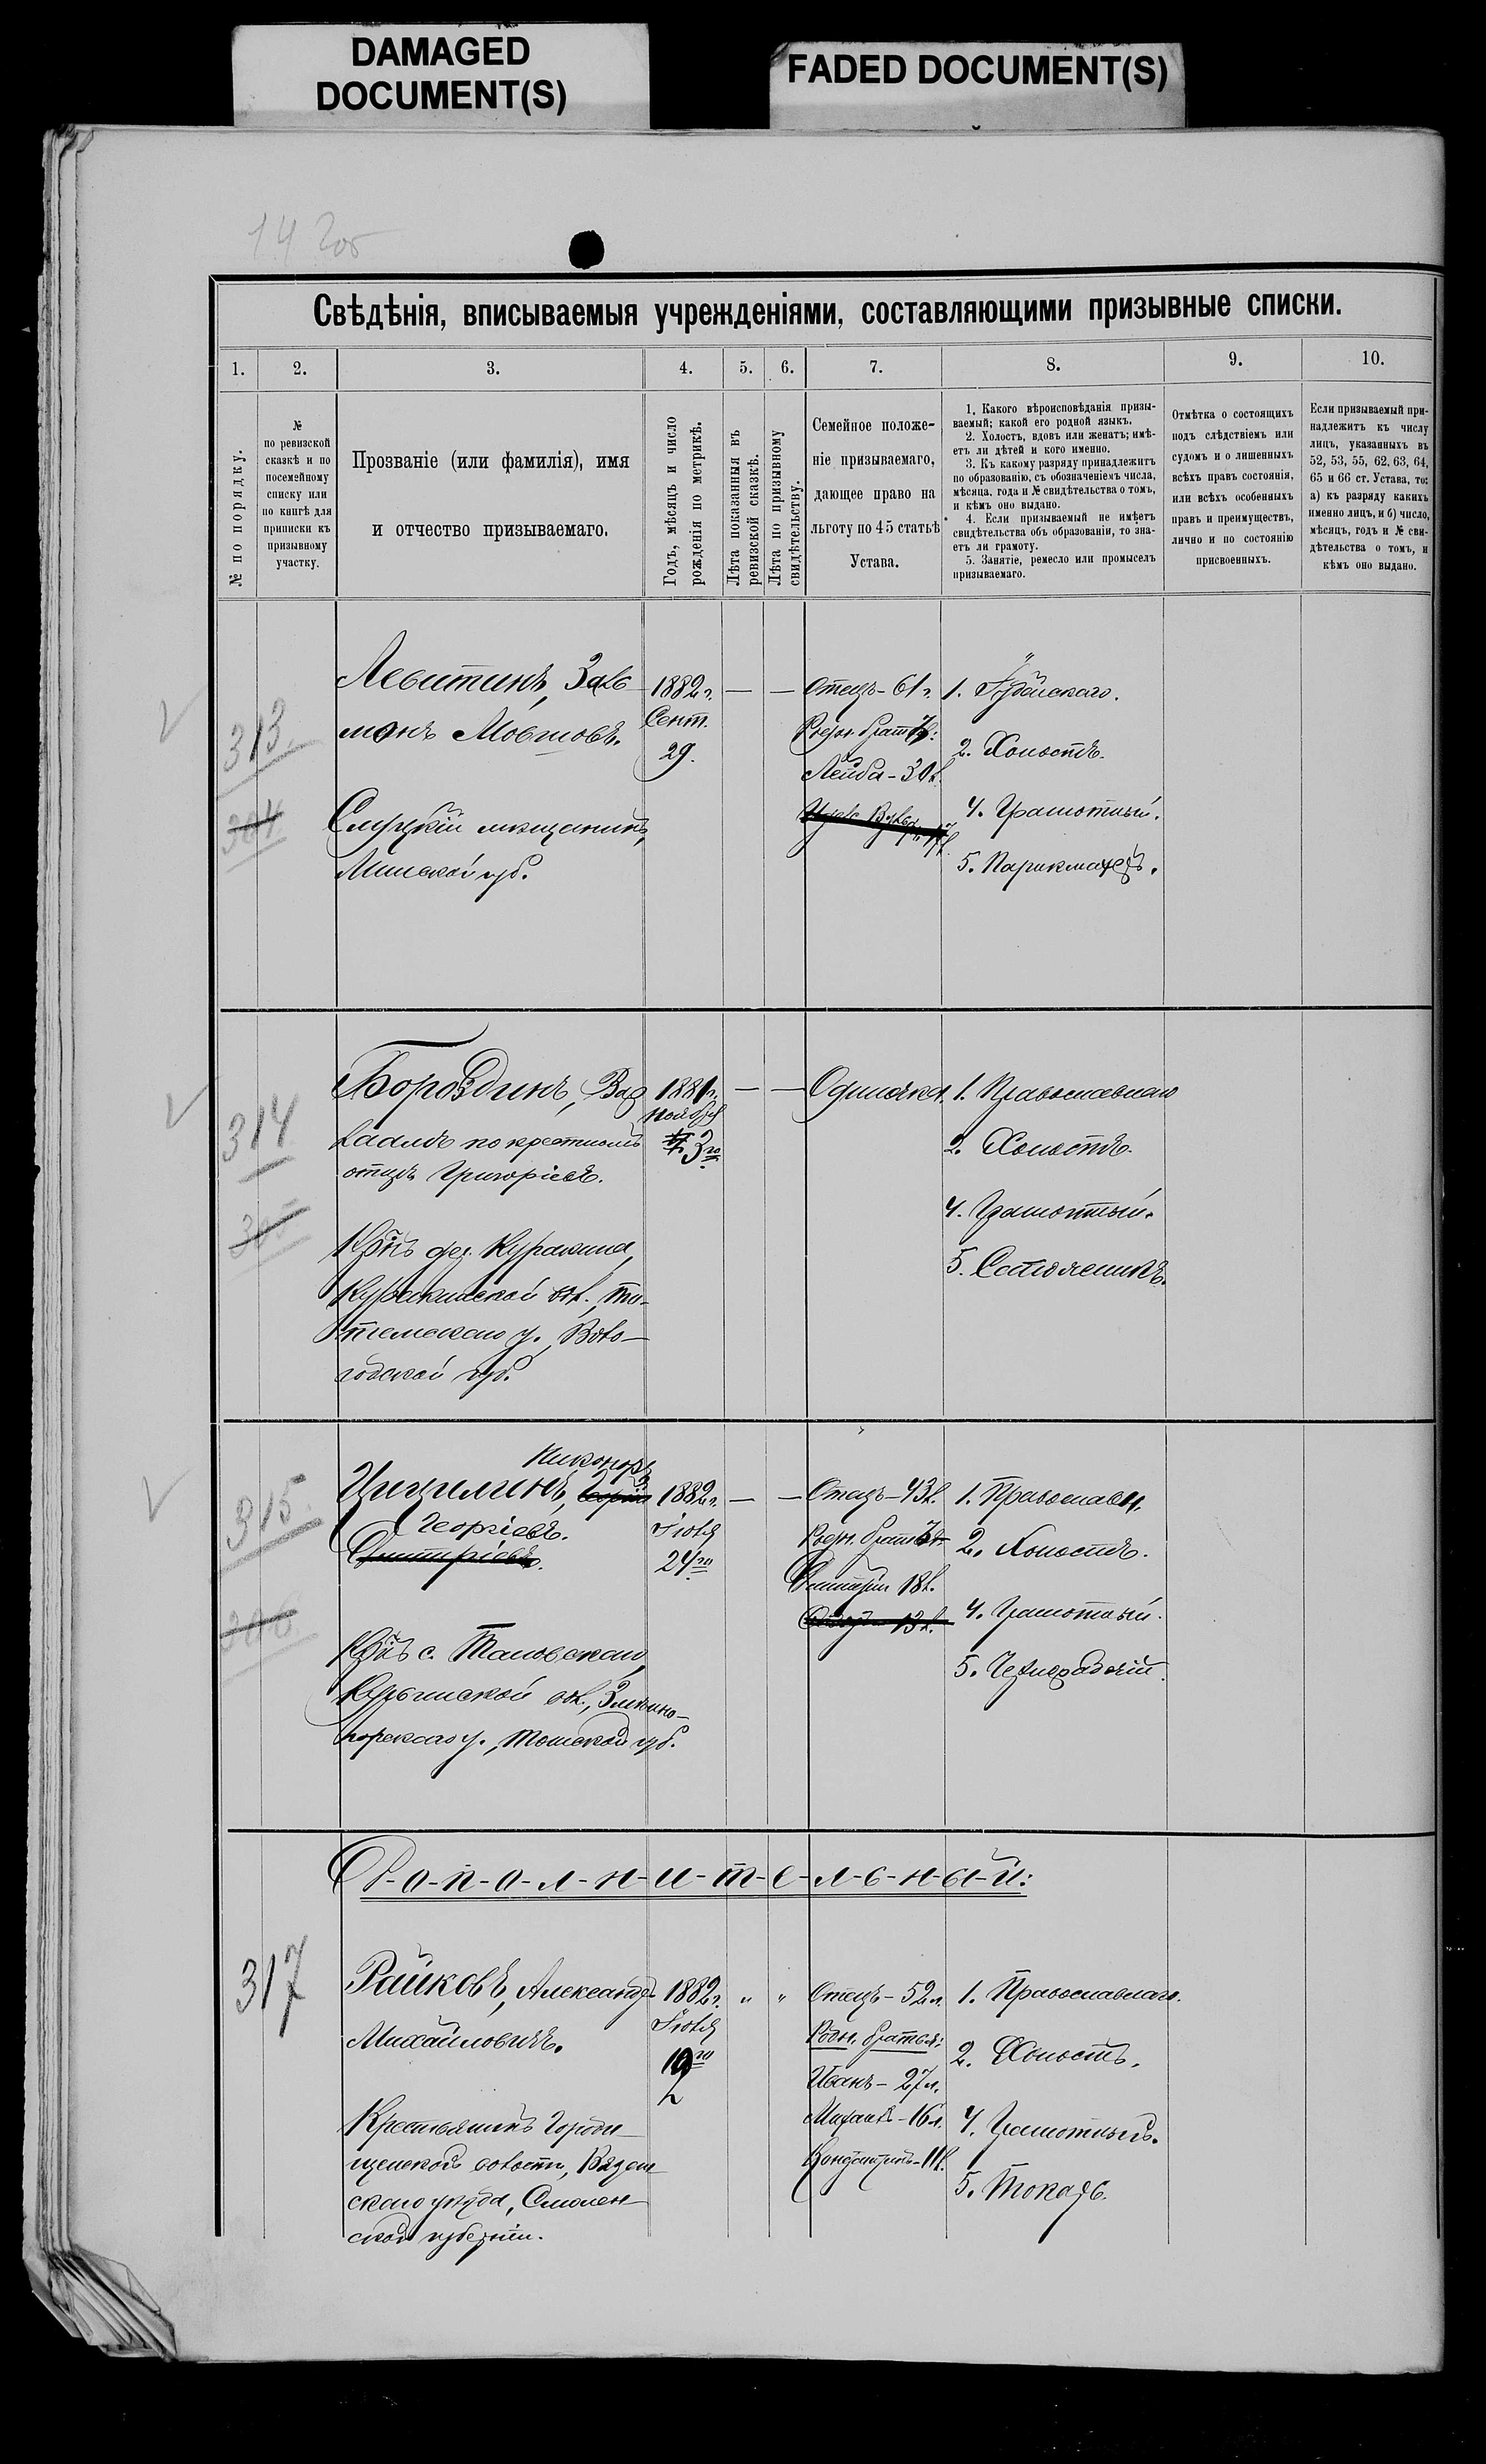 DAMAGED
DOCUMENT(S)
FADED DOCUMENT(S)
Свѣдѣнія, вписываемыя учрежденіями, составляющими призывные списки.
1. 2. 3. 4. 5. 6. 7. 8. 9. 10.
№ по порядку.
№
по ревизской
сказкѣ и по
посемейному
списку или
по книгѣ для
приписки къ
призывному
участку.
Прозваніе (или фамилія), имя
и отчество призываемаго.
Годъ, мѣсяцъ и число
рожденія по метрикѣ.
Лѣта показанныя въ
ревизской сказкѣ.
Лѣта по призывному
свидѣтельству.
Семейное положе-
ніе призываемаго,
дающее право на
льготу по 45 статьѣ
Устава.
1. Какого вѣроисповѣданія призы-
ваемый; какой его родной языкъ.
2. Холостъ, вдовъ или женатъ; имѣ-
етъ ли дѣтей и кого именно.
3. Къ какому разряду принадлежитъ
по образованію, съ обозначеніемъ числа,
мѣсяца, года и № свидѣтельства о томъ,
и кѣмъ оно выдано.
4. Если призываемый не имѣетъ
свидѣтельства объ образованіи, то зна-
етъ ли грамоту.
5. Занятіе, ремесло или промыселъ
призываемаго.
Отмѣтка о состоящихъ
подъ слѣдствіемъ или
судомъ и о лишенныхъ
всѣхъ правъ состоянія,
или всѣхъ особенныхъ
правъ и преимуществъ,
лично и по состоянію
присвоенныхъ.
Если призываемый при-
надлежитъ къ числу
лицъ, указанныхъ въ
52, 53, 55, 62, 63, 64,
65 и 66 ст. Устава, то:
а) къ разряду какихъ
именно лицъ, и б) число,
мѣсяцъ, годъ и № сви-
дѣтельства о томъ, и
кѣмъ оно выдано.
313
304
Левитинъ, Зал
монъ Мовшовъ.
Слуцкій мѣщанинъ,
Минской губ.
1882 г.
Сент.
29.
Отецъ - 61 г.
Родн. братъ:
Лейба - 30 л.
1. Іудейскаго.
2. Холостъ.
4. Грамотный.
5. Парикмахеръ.
314
305
Бороздинъ,
по крестному
отцу Григорьевъ.
Кр-нъ дер. Куракина,
Куракинской вол., То-
темскаго у., Воло-
годской губ.
1881 г.
Ноября
3го
Одиночка.
1. Православнаго
2. Холостъ.
4. Грамотный.
5. Сапожникъ.
315
306
Никоноръ
Цицилинъ,
Георгіевъ.
Дмитріевъ.
Кр-нъ с. Таловскаго,
вол., Змѣино-
горскаго у., Томской губ.
1882 г.
Іюля
24го
Отецъ - 43 л.
Родн. братъ
Дмитрій 18 л.
13 л.
1. Православн.
2. Холостъ.
4. Грамотный.
5. Чернорабочій.
Д-о-п-о-л-н-и-т-е-л-ь-н-ы-й:
317
Райковъ, Александръ
Михайловичъ.
Крестьянинъ Городи-
щенской волости, Вязем
скаго уѣзда, Смолен
ской губерніи.
1882 г.
Іюля
19го
" "
Отецъ - 52 л.
Родн. братья:
Иванъ - 27 л.
Михаилъ - 16 л.
Константинъ - 11 л.
1. Православнаго.
2. Холостъ.
4. Грамотный.
5. Токарь.